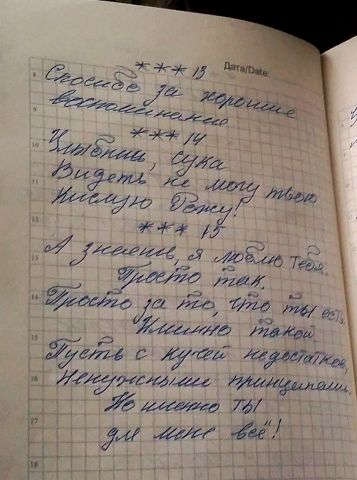 Дата/Date:
*** 13
8
Спасибо за хорошие
9
воспоминания
*** 14
10
Улыбнись, сука
11
Видеть не могу твою
Кислую Рожу!
12
*** 15
13
А знаешь, я люблю тебя.
Просто так.
14
Просто за то, что ты есть.
Именно такой
15
Пусть с кучей недостатков,
16
Ненужными принципами.
Но именно ты
17
для меня всё!
18